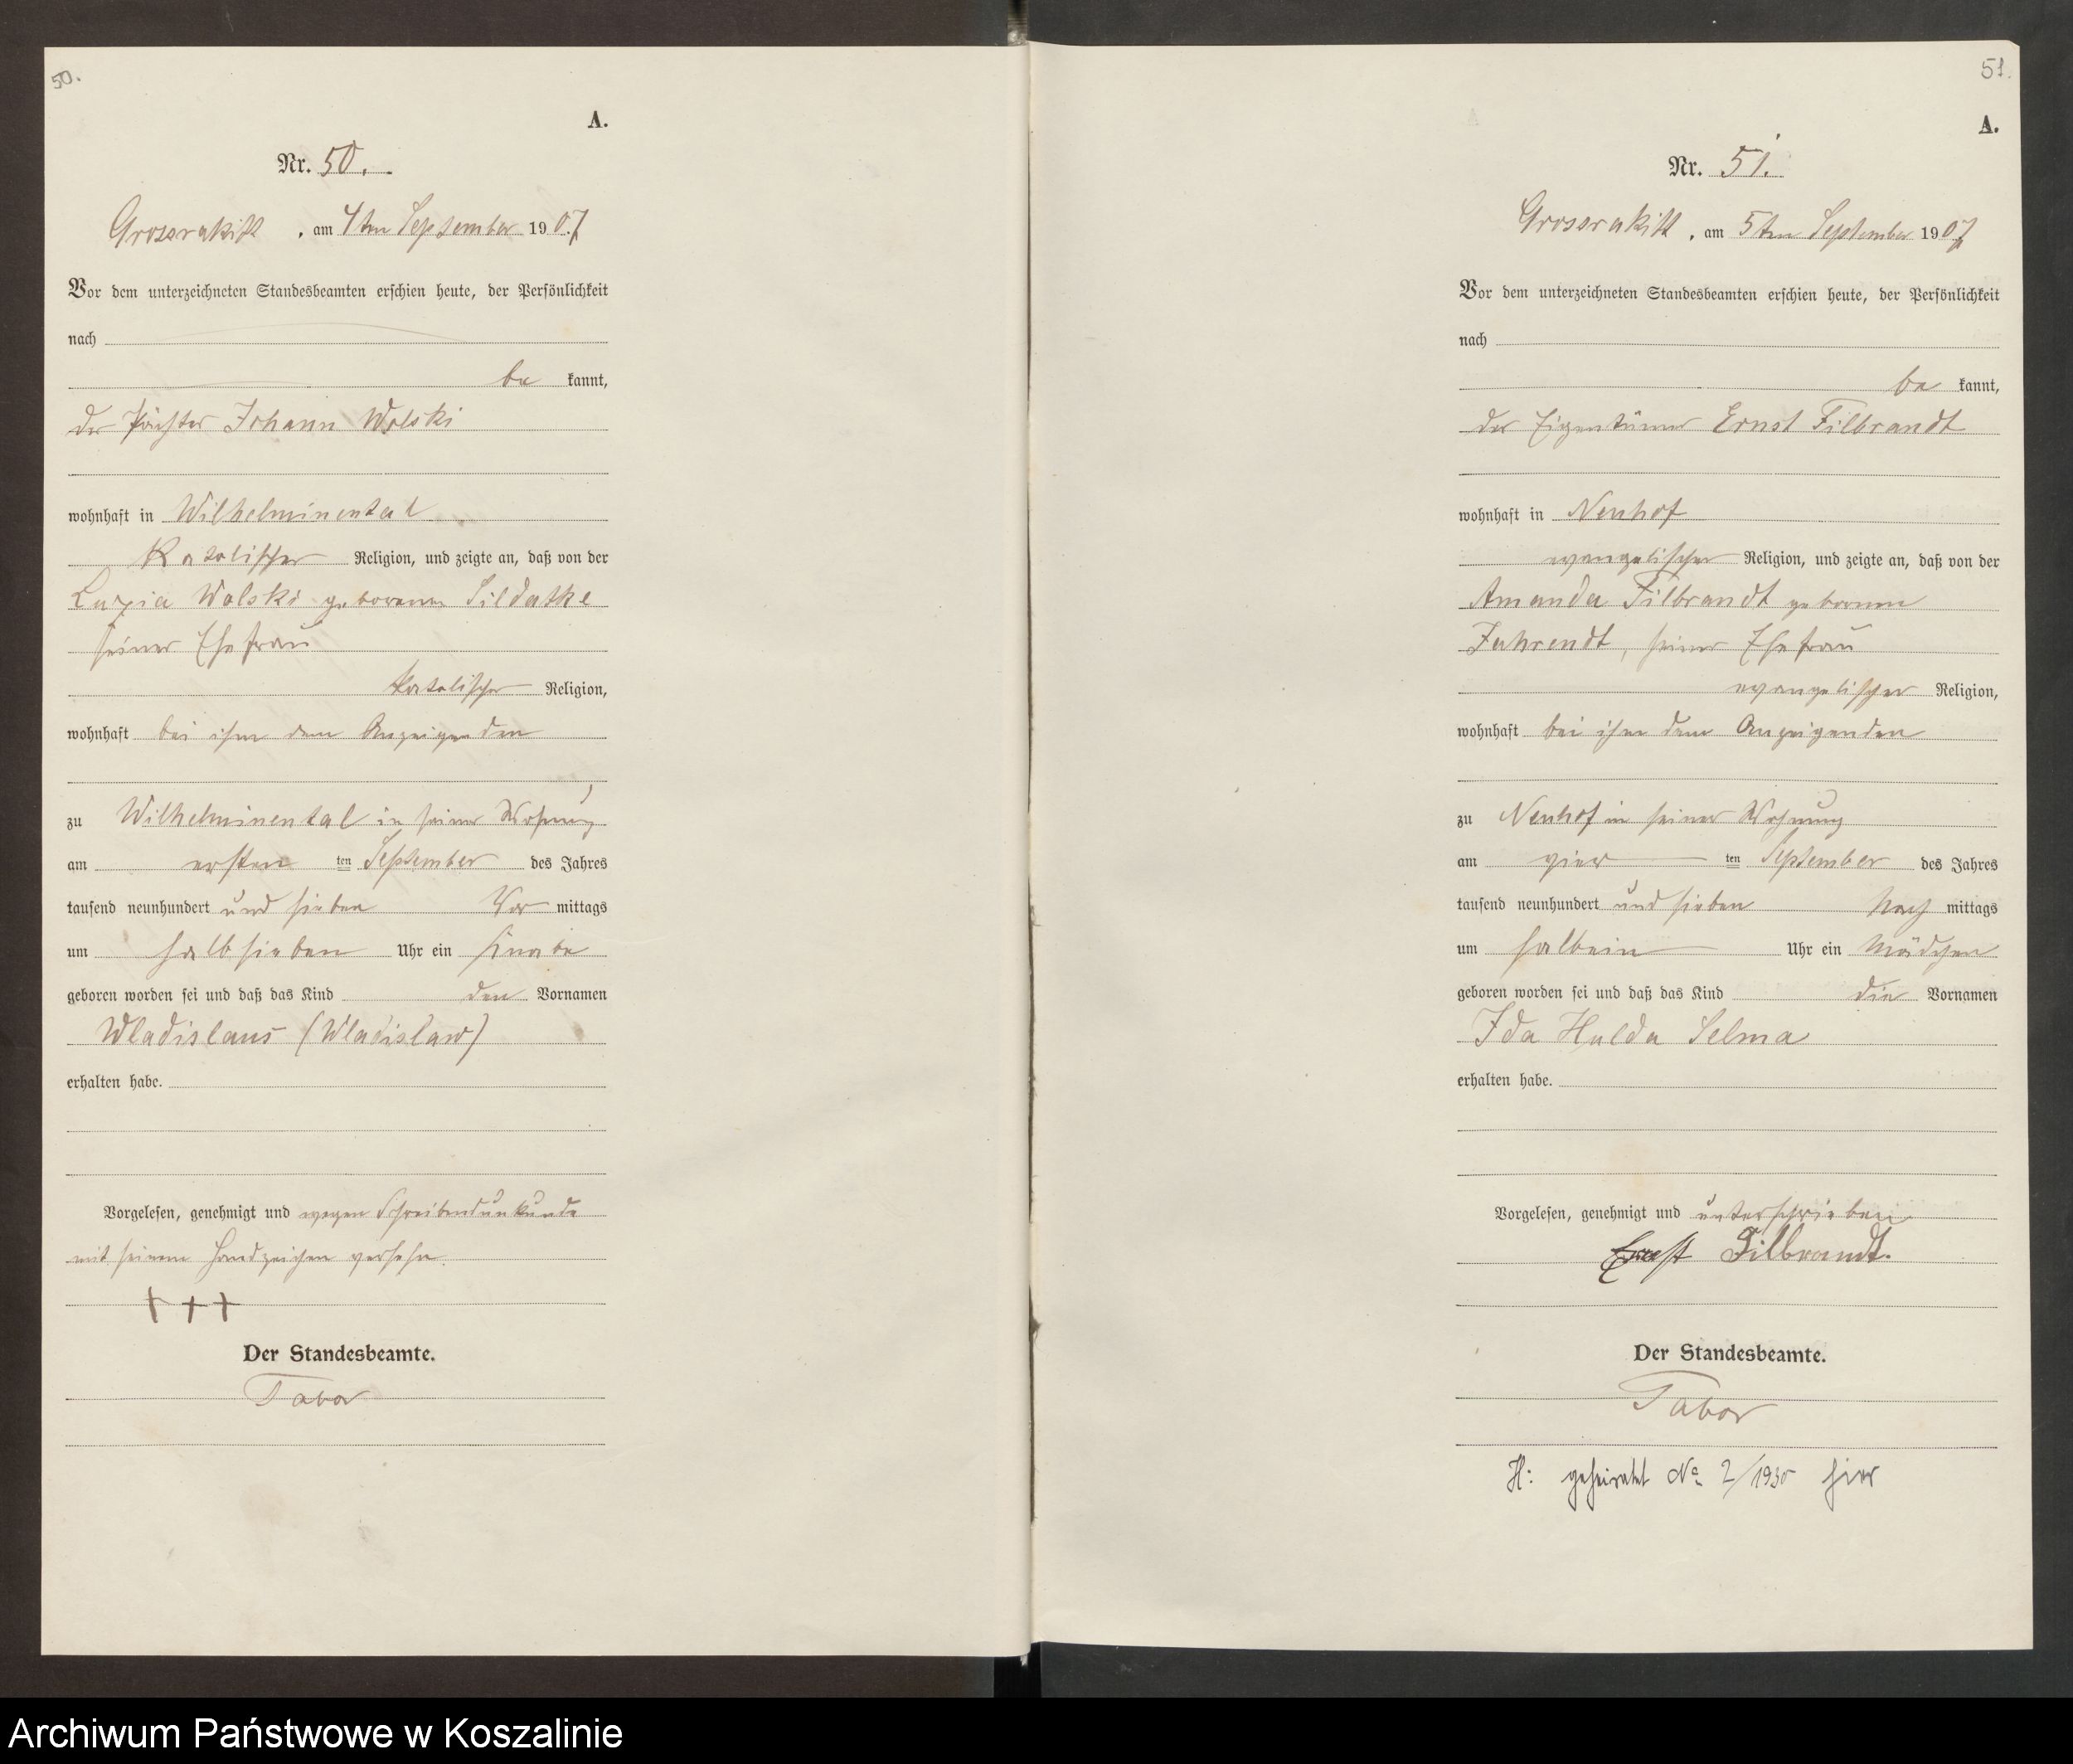 50.
A.
Nr. 50.
Grossrakitt, am 4ten September 1907
Vor dem unterzeichneten Standesbeamten erschien heute, der Persönlichkeit
nach
be kannt,
der Pächter Johann Wolski
wohnhaft in Wilhelminental
Katolischer Religion, und zeigte an, daß von der
Luzia Wolski geborenen Sildatke
seiner Ehefrau
katolischer Religion,
wohnhaft bei ihm dem Anzeigenden
zu Wilhelminental in seiner Wohnung
am ersten ten September des Jahres
tausend neunhundert und sieben Vor mittags
um halb sieben Uhr ein Knabe
geboren worden sei und daß das Kind den Vornamen
Wladislaus (Wladislaw)
erhalten habe.
Vorgelesen, genehmigt und wegen Schreibensunkunde
mit seinem Handzeichen versehn.
+++
Der Standesbeamte.
Tabor
51.
A.
Nr. 51.
Grossrakitt, am 5ten September 1907
Vor dem unterzeichneten Standesbeamten erschien heute, der Persönlichkeit
nach
be kannt,
der Eigentümer Ernst Filbrandt
wohnhaft in Neuhof
evangelischer Religion, und zeigte an, daß von der
Amanda Filbrandt geborenen
Jahrendt, seiner Ehefrau
evangelischer Religion,
wohnhaft bei ihm dem Anzeigenden
zu Neuhof in seiner Wohnung
am vier ten September des Jahres
tausend neunhundert und sieben Nach mittags
um halb ein Uhr ein Mädchen
geboren worden sei und daß das Kind die Vornamen
Ida Hulda Selma
erhalten habe.
Vorgelesen, genehmigt und unterschrieben
Ernst Filbrandt.
Der Standesbeamte.
Tabor
H: geheiratet No 2/1930 hier
Archiwum Państwowe w Koszalinie